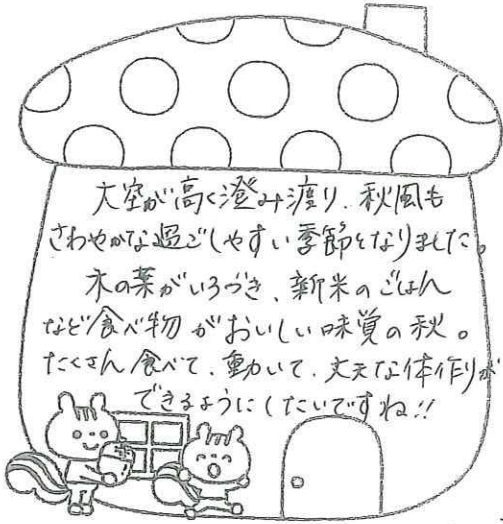 大空が高く澄み渡り、秋風も
さわやかな過ごしやすい季節となりました。
木の葉がいろづき、新米のごはん
など食べ物がおいしい味覚の秋。
たくさん食べて、動いて、丈夫な体作りが
できるようにしたいですね!!